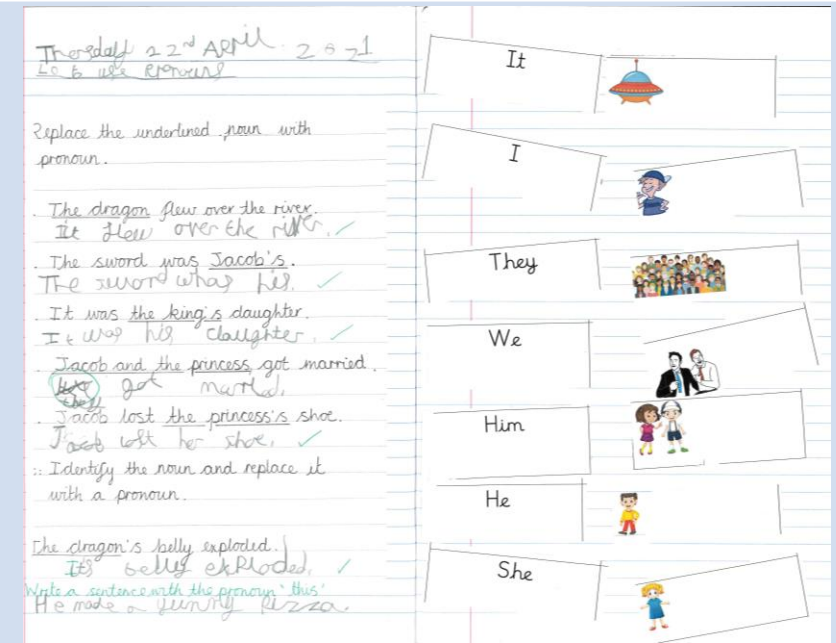 Thorsday 22nd April 2021
Lo to use Pronouns
Replace the underlined noun with
pronoun.
The dragon flew over the river.
It flew over the river.
The sword was Jacob's.
The sword whas his.
It was the king's daughter.
It was his daughter.
Jacob and the princess got married.
got married.
they
Jacob lost the princess's shoe.
Jacob lost her shoe.
:: Identify the noun and replace it
with a pronoun.
The dragon's belly exploded.
It's belly exploded.
Write a sentence with the pronoun 'this'
He made a yummy pizza.
It
I
They
We
Him
He
She